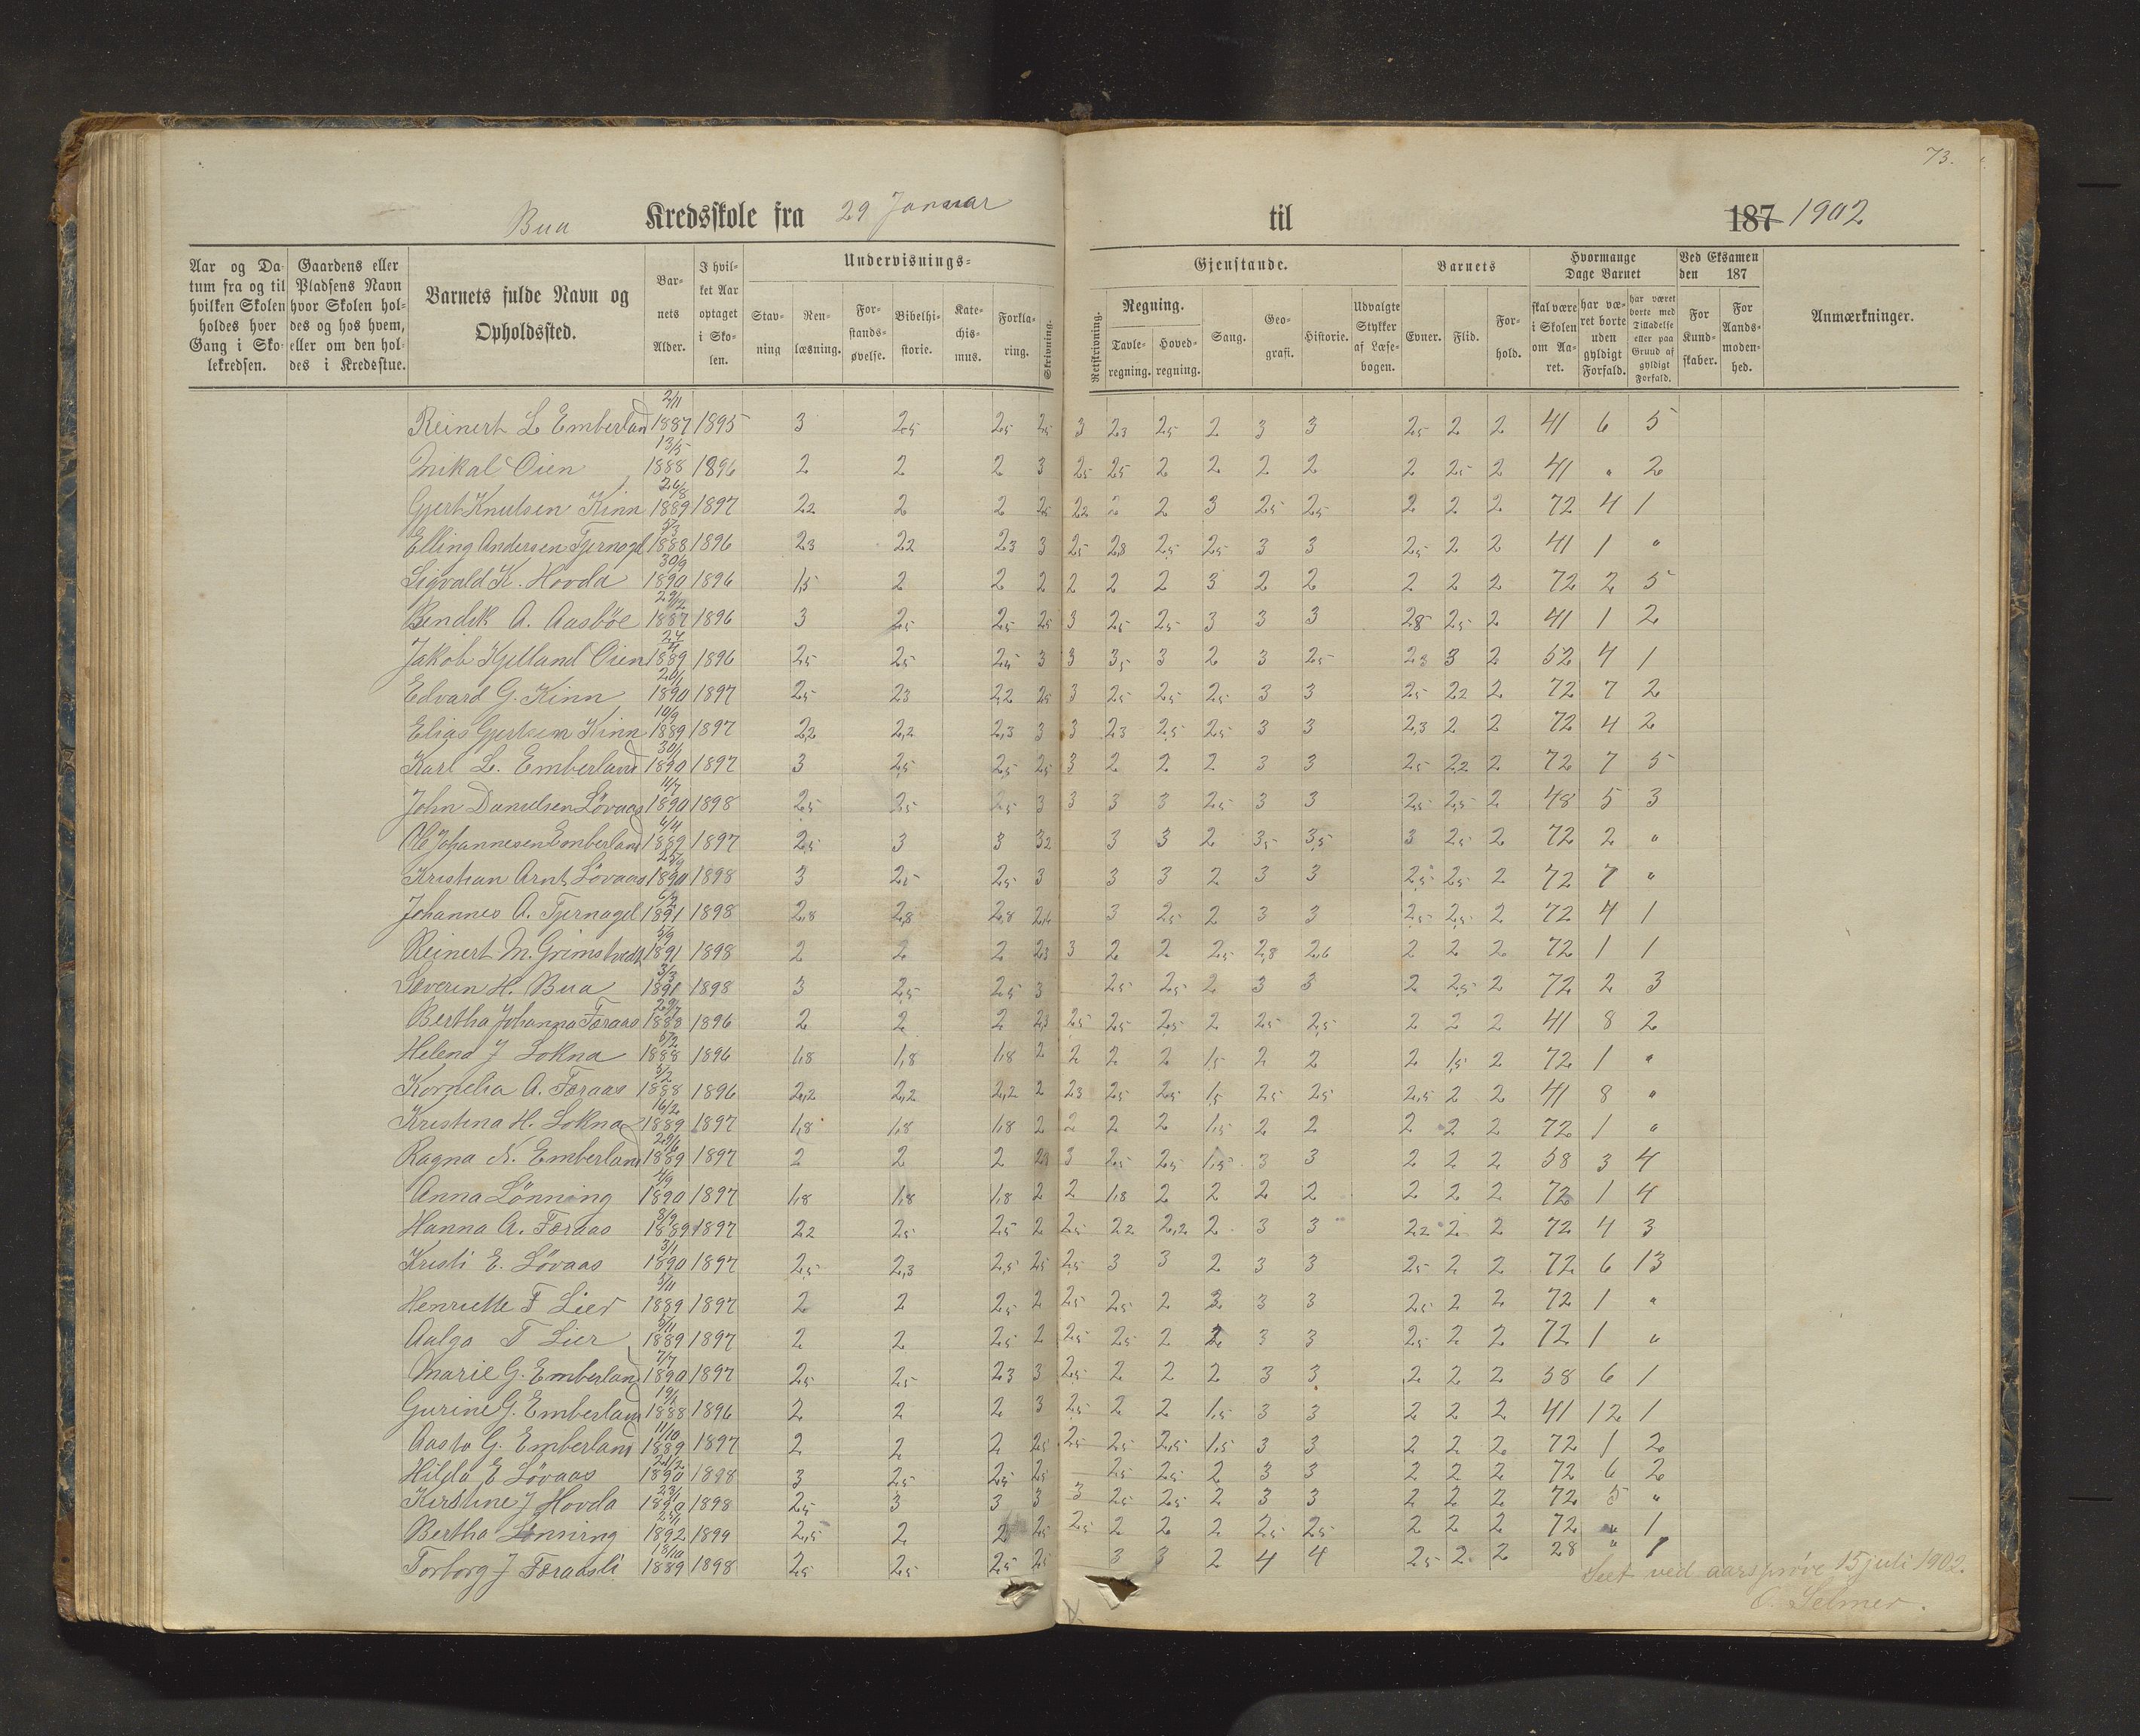 73.
Bua Kredsskole fra 29 Januar til 187 1902
Aar og Da- tum fra og til hvilken Skolen holdes hver Gang i Sko- lekredsen.
Gaardens eller Pladsens Navn hvor Skolen hol- des og hos hvem, eller om den hol- des i Kredsstue.
Barnets fulde Navn og Opholdssted.
Bar- nets Alder.
I hvil- ket Aar optaget i Sko- len.
Undervisnings- Gjenstande.
Stav- ning
Ren- læsning.
For- stands- øvelse.
Bibelhi- storie.
Kate- chis- mus.
Forkla- ring.
Skrivning.
Retskrivning.
Regning.
Tavle- regning.
Hoved- regning.
Sang.
Geo- grafi.
Historie.
Udvalgte Stykker af Læse- bogen.
Barnets
Evner.
Flid.
For- hold.
Hvormange Dage Barnet
skal være i Skolen om Aa- ret.
har væ- ret borte uden gyldigt Forfald.
har været borte med Tilladelse eller paa Grund af gyldigt Forfald.
Ved Eksamen den 187
For Kund- skaber.
For Aands- moden- hed.
Anmærkninger.
Reinert L Emberland 2/11 1887 1895 3 2,5 2,5 2,5 3 2,3 2,5 2 3 3 2,5 2 2 41 6 5
Mikal Oien 13/5 1888 1896 2 2 2 3 2,5 2,5 2 2 2 2 2 2,5 2 41 " 2
Gjert Knutsen Kinn 26/8 1889 1897 2,2 2 2 2,5 2,2 2 2 3 2,5 2,5 2 2 2 72 4 1
Elling Andersen Tjernagel 1888 1896 2,3 2,2 2,3 3 2,5 2,8 2,5 2,5 3 3 2,5 2 2 41 1 "
Sigvald K. Hovda 30/9 1890 1896 1,5 2 2 2 2 2 2 3 2 2 2 2 2 72 2 5
Bendik A. Aasböe 29/12 1887 1896 3 2,5 2,5 2,5 3 2,5 2,5 3 3 3 2,8 2,5 2 41 1 2
Jakob Kjelland Oien 1889 1896 2,5 2,5 2,5 3 3 3,5 3 2 3 2,5 2,3 3 2 52 4 1
Edvard G. Kinn 20/1 1890 1897 2,5 2,3 2,2 2,5 3 2,5 2,5 2,5 3 3 2,5 2,2 2 72 7 2
Elias Gjertsen Kinn 10/9 1889 1897 2,2 2,2 2,3 3 3 2,3 2,5 2,5 3 3 2,3 2 2 72 4 2
Karl L. Emberland 30/1 1890 1897 3 2,5 2,5 2,5 3 2 2 2 3 3 2,5 2,2 2 72 7 5
John Danielsen Lövaas 11/7 1890 1898 2,5 2,5 2,5 3 3 3 3 2,5 3 3 2,5 2,5 2 48 5 3
Ole Johannesen Emberland 6/4 1889 1897 2,5 3 3 3,2 3 3 2 3,5 3,5 3 2,5 2 72 2 "
Kristian Arnt Lövaas 25/9 1890 1898 3 2,5 2,5 3 3 3 2 3 3 2,5 2,5 2 72 7 "
Johannes A. Tjernagel 1891 1898 2,8 2,8 2,8 3 2,5 2 3 3 2,5 2,5 2 72 4 1
Reinert M. Grimstvedt 5/9 1891 1898 2 2 2 2,3 3 2 2 2,5 2,8 2,6 2 2 2 72 1 1
Severin H. Bua 3/3 1891 1898 3 2,5 2,5 3 2,5 2,5 2 3 3 2 2,5 2 72 2 3
Bertha Johanna Færaas 1888 1896 2 2 2 2,3 2,5 2,5 2,5 2 2,5 2,5 2 2 2 41 8 2
Helena J Lokna 1888 1896 1,8 1,8 1,8 2 2 2 2 1,5 2 2 2 1,5 2 72 1 "
Kornelia A. Færaas 5/2 1888 1896 2,2 2,2 2,2 2 2,3 2,5 2,5 1,5 2,5 2,5 2,5 2 2 41 8 "
Kristina H. Lokna 16/2 1889 1897 1,8 1,8 1,8 2 2 2 2 1,5 2 2 2 2 2 72 1 "
Ragna N. Emberland 1889 1897 2 2 2 3 2,5 2,5 1,5 3 3 2 2 2 58 3 4
Anna Lönning 4/9 1890 1897 1,8 1,8 1,8 2 2 1,8 2 2 2 2 2 2 2 72 1 4
Hanna A. Færaas 3/9 1889 1897 2,2 2,5 2,5 2 2,5 2,2 2,2 2 3 3 2,2 2 2 72 4 3
Kristi E. Lövaas 3/1 1890 1897 2,5 2,3 2,5 2,5 2,5 3 3 2 3 3 2,5 2 2 72 6 13
Henriette F Lier 5/11 1889 1897 2 2 2,5 2 2,5 2,5 2 2 3 3 2,5 2 2 72 1 "
Aalga T Lier 5/11 1889 1897 2 2 2,5 2 2,5 2,5 2 2 3 3 2,5 2 2 72 1 "
Marie G. Emberland 7/7 1890 1897 2,5 2,5 2,3 3 2,5 2 2 2 3 3 2 2 2 58 6 1
Gurine G. Emberland 1888 1896 2 2 2 3 2,5 2 2 1,5 3 3 2 2 2 41 12 1
Aasta G. Emberland 11/10 1889 1897 2 2 2 2,5 2,5 2,5 2,5 1,5 3 3 2 2 2 72 1 2
Hilda E Lövaas 1890 1898 3 2,5 2,5 2,5 2,5 2,5 2 3 3 2 2 2 72 6 2
Kirstine J Hovda 1890 1898 2,5 3 3 3 3 2,5 2,5 2 3 3 2 2 2 72 5 "
Bertha Lönning 1892 1899 2,5 2 2 2,5 2,5 2 2 2 2,5 2,5 2 2 2 72 " 1
Torborg J Færaasli 18/10 1889 1898 2,5 2,5 2,5 2,5 3 3 2 4 4 2,5 2 2 28 " 1
Seet ved aarsprøve 15 juli 1902.
O. Selmer.